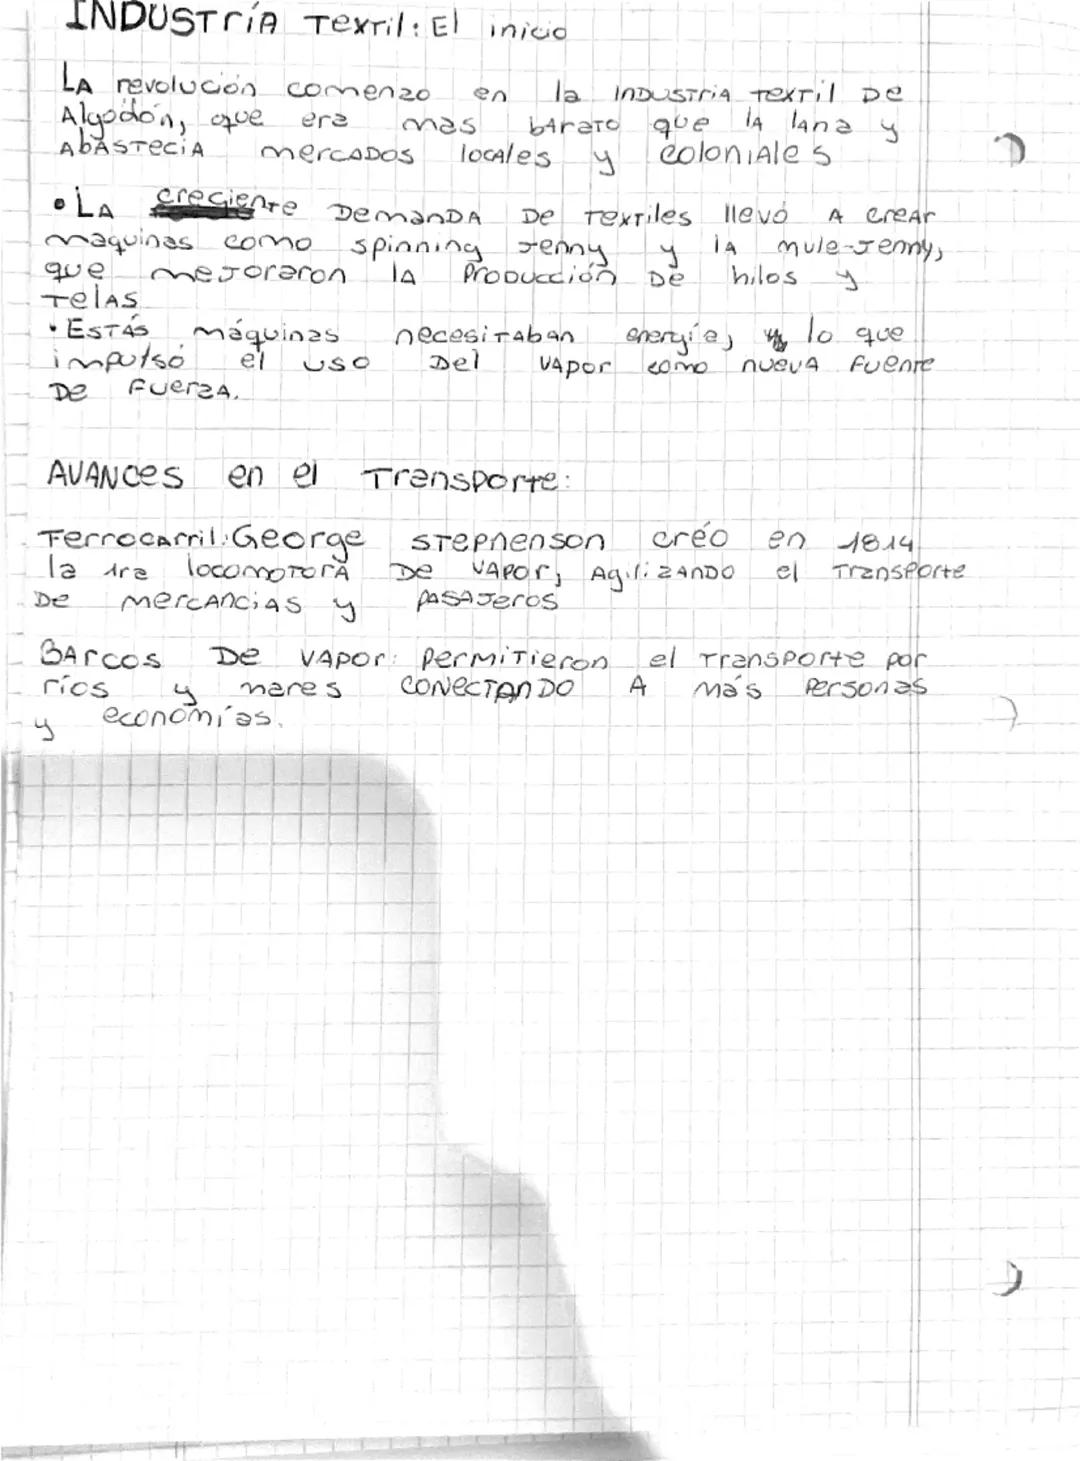 INDUSTría Textil: El inicio
LA revolución comenzo en la INDUSTria textil De
Algodón, que era mas bArato que lA lana y
AbAsteciA mercADos locAles y coloniAles
• LA creciente DemanDA De textiles llevó A creAr
maquinas como spinning Jenny y lA mule-Jenny,
que mejoraron lA Producción De hilos y
TelAs
• EstÁs máquinas necesitaban energía, lo que
impulsó el uso Del vApor como nuevA fuente
De fuerzA.
AVANces en el Transporte:
Ferrocarril: George stephenson creó en 1814
la 1ra locomotorA De vApor, Agilizando el Transporte
De mercAnciAs y pAsAJeros
BArcos De vApor: permitieron el Transporte por
ríos y mares conectAnDo A más personas
y economías.